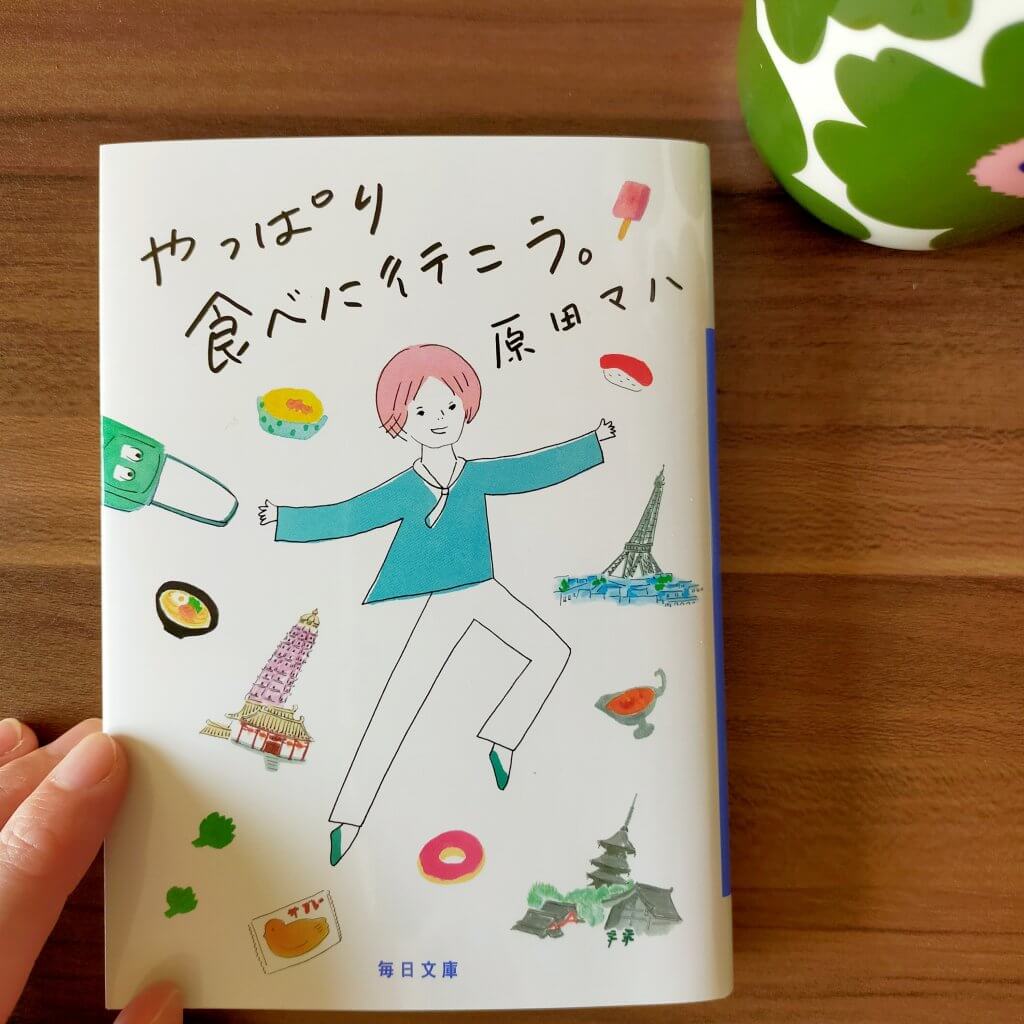 やっぱり
食べに行こう。
原田マハ
サブレー
毎日文庫